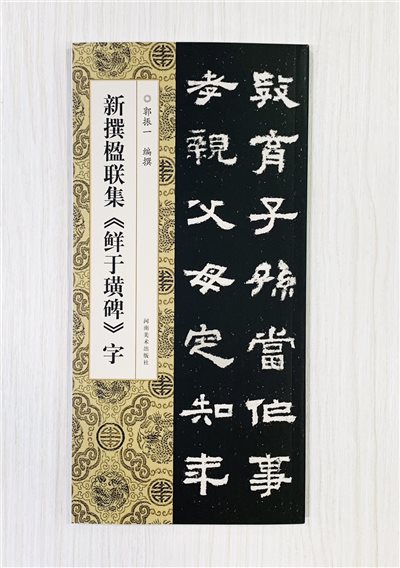 新撰楹联集《鲜于璜碑》字
◎ 郭振一 编撰
河南美术出版社
敎育子孫當事
孝親父母定知来